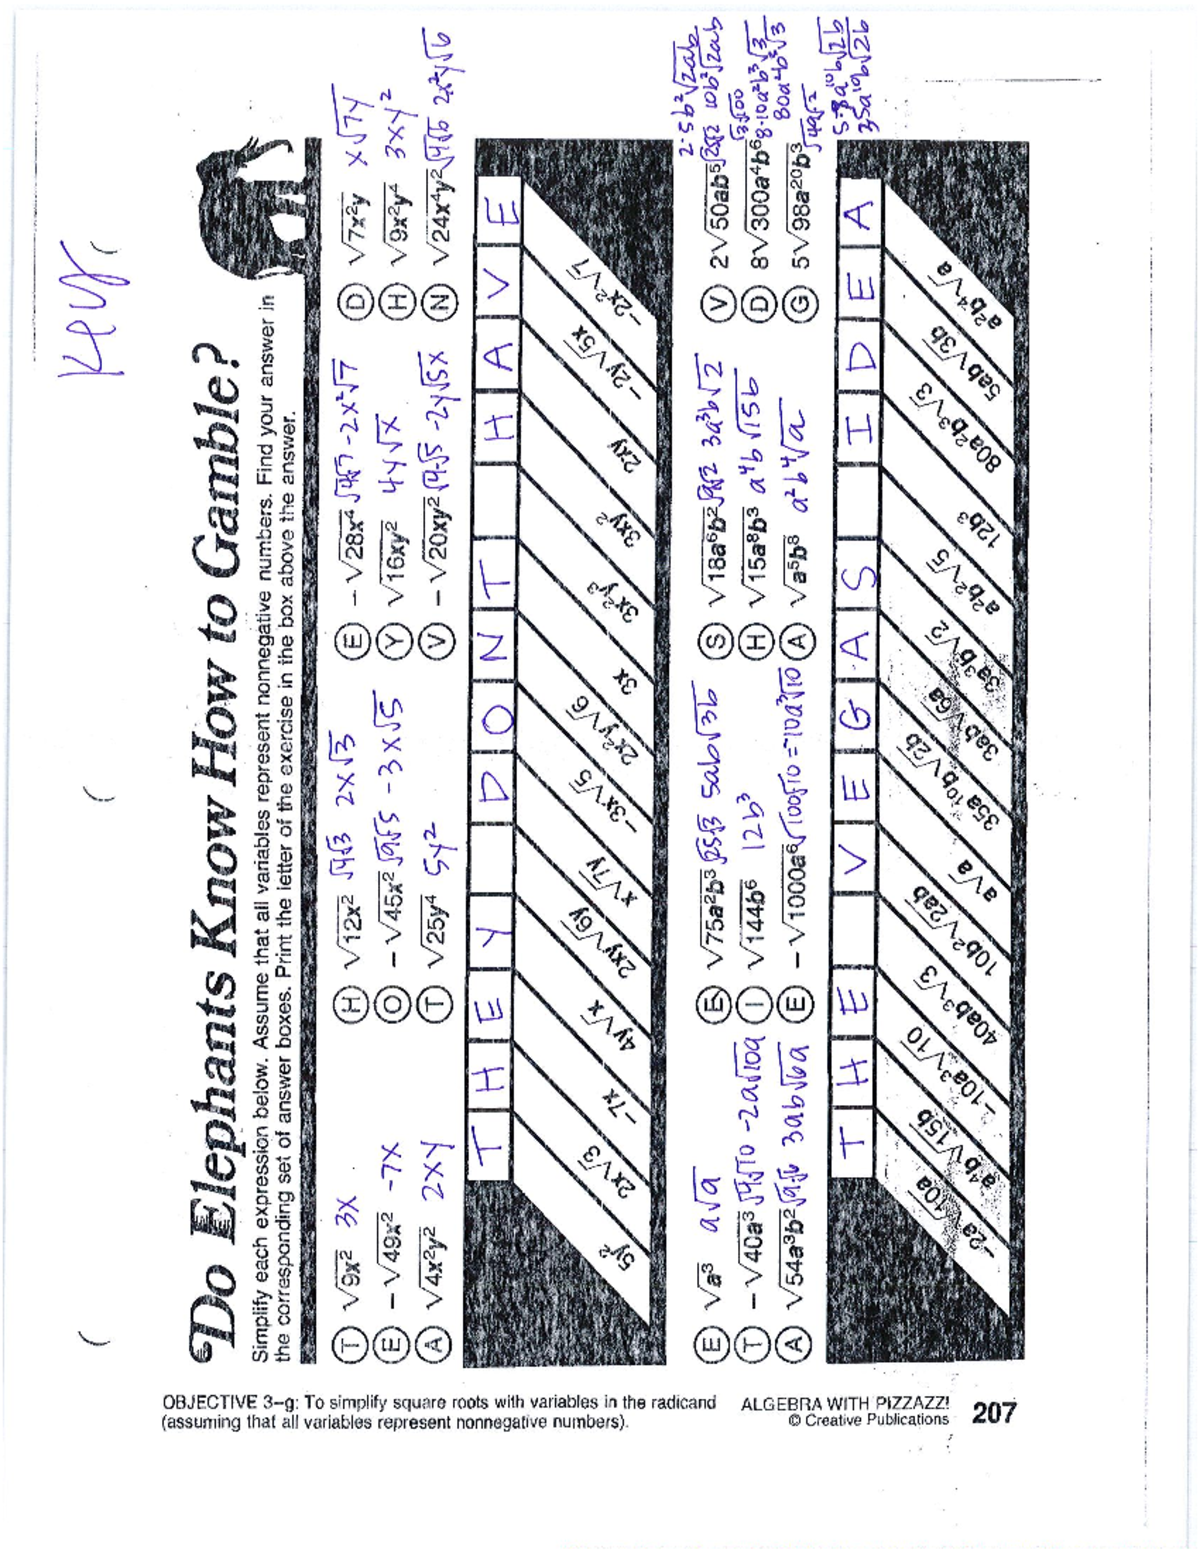 Key
Do Elephants Know How to Gamble?
Simplify each expression below. Assume that all variables represent nonnegative numbers. Find your answer in
the corresponding set of answer boxes. Print the letter of the exercise in the box above the answer.
Ⓣ √9x² 3x
Ⓔ −√49x² -7x
Ⓐ √4x²y² 2xy
Ⓗ √12x² √4√3 2x√3
Ⓞ −√45x² √9√5 -3x√5
Ⓣ √25y⁴ 5y²
Ⓔ −√28x⁴ √4√7 -2x²√7
Ⓨ √16xy² 4y√x
Ⓥ −√20xy² √4·√5 -2y√5x
Ⓓ √7x²y x√7y
Ⓗ √9x²y⁴ 3xy²
Ⓝ √24x⁴y² √4√6 2x²y√6
T H E Y D O N T H A V E
5y² 2x√3 −7x 4y√x 2xy√6y x√7y −3x√5 2x²y√6 3x 3x²y³ 3xy² 2xy −2y√5x −2x²√7
Ⓔ √a³ a√a
Ⓣ −√40a³ √4√10 -2a√10a
Ⓐ √54a³b² √9√6 3ab√6a
Ⓔ √75a²b³ √25√3 5ab√3b
Ⓘ √144b⁶ 12b³
Ⓔ −√1000a⁶ √100√10 = -10a³√10
Ⓢ √18a⁶b² √9√2 3a³b√2
Ⓗ √15a⁸b³ a⁴b√15b
Ⓐ √a⁵b⁸ a²b⁴√a
2·5b²√2ab
Ⓥ 2√50ab⁵ √25√2 10b²√2ab
√3√100
Ⓓ 8√300a⁴b⁶ 8·10a²b³√3
80a²b³√3
Ⓖ 5√98a²⁰b³
√49√2
5·7a¹⁰b√2b
35a¹⁰b√2b
T H E V E G A S I D E A
−2a√10a a⁴b√15b −10a³√10 40ab³√3 10b²√2ab a√a 35a¹⁰b√2b 3ab√6a 3a³b√2 a²b²√5 12b³ 80a²b³√3 5ab√3b a²b⁴√a
OBJECTIVE 3–g: To simplify square roots with variables in the radicand
(assuming that all variables represent nonnegative numbers).
ALGEBRA WITH PIZZAZZ!
© Creative Publications
207